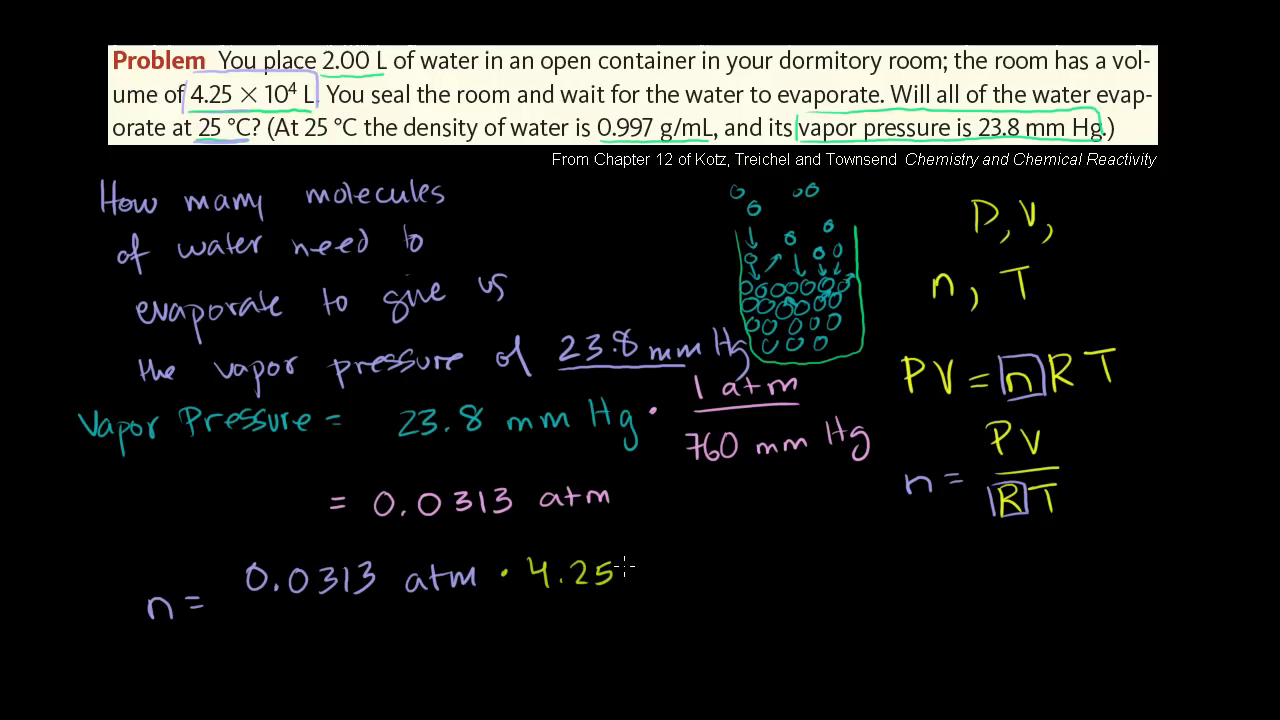 Problem You place 2.00 L of water in an open container in your dormitory room; the room has a vol-
ume of 4.25 × 10⁴ L. You seal the room and wait for the water to evaporate. Will all of the water evap-
orate at 25 °C? (At 25 °C the density of water is 0.997 g/mL, and its vapor pressure is 23.8 mm Hg.)
From Chapter 12 of Kotz, Treichel and Townsend Chemistry and Chemical Reactivity
How many molecules
of water need to
evaporate to give us
the vapor pressure of 23.8 mm Hg
Vapor Pressure = 23.8 mm Hg · 1 atm / 760 mm Hg
= 0.0313 atm
n = 0.0313 atm · 4.25
P, V,
n, T
PV = nRT
n = PV / RT